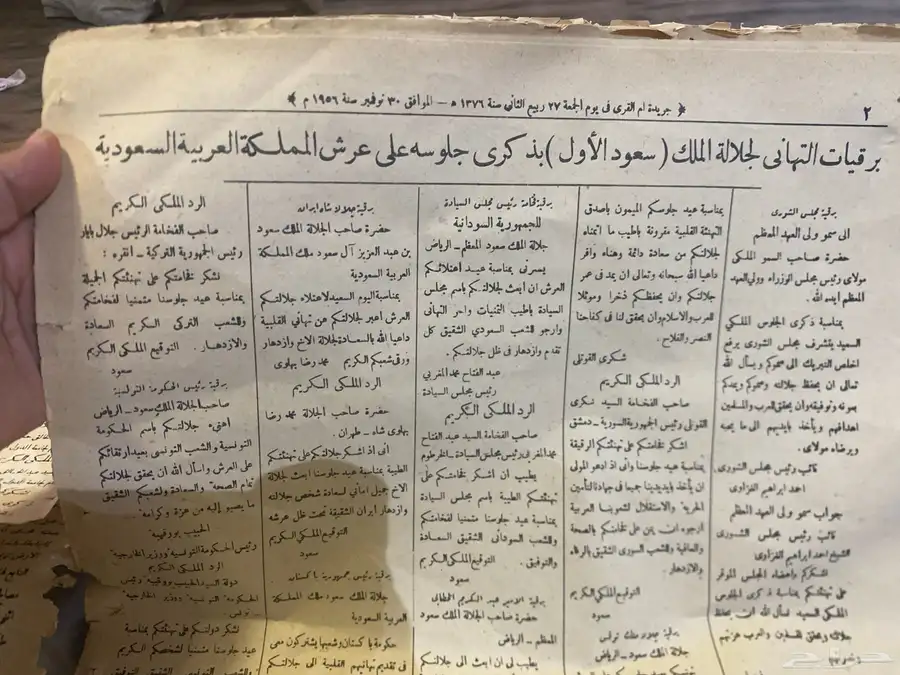 ٢
﴿ جريدة ام القرى فى يوم الجمعة ٢٧ ربيع الثانى سنة ١٣٧٦ ه – الموافق ٣٠ نوفمبر سنة ١٩٥٦ م ﴾
برقيات التهانى لجلالة الملك ( سعود الأول ) بذكرى جلوسه على عرش المملكة العربية السعودية
برقية مجلس الشورى
الى سمو ولى العهد المعظم
حضرة صاحب السمو الملكى
مولاى رئيس مجلس الوزراء وولى العهد
المعظم ايده الله.
بمناسبة ذكرى الجلوس الملكى
السعيد يتشرف مجلس الشورى برفع
اخلص التبريك الى سموكم ويسأل الله
تعالى ان يحفظ جلالته وسموكم ويمدكم
بعونه وتوفيقه وان يحقق للعرب والمسلمين
اهدافهم ويأخذ بايديهم الى ما يحبه
ويرضاه مولاى.
نائب رئيس مجلس الشورى
احمد ابراهيم الغزاوى
جواب سمو ولى العهد المعظم
نائب رئيس مجلس الشورى
الشيخ احمد ابراهيم الغزاوى
نشكركم واعضاء المجلس الموقر
على تهنئتكم بمناسبة ذكرى الجلوس
الملكى السعيد نسأل الله ان يحفظ
بمناسبة عيد جلوسكم الميمون باصدق
التهنئة القلبية مقرونة باطيب ما اتمناه
لجلالتكم من سعادة دائمة وهناء وافر
داعيا الله سبحانه وتعالى ان يمد فى عمر
جلالتكم وان يحفظكم ذخرا وموئلا
للعرب والاسلام وان يحقق لنا فى كفاحنا
النصر والفلاح.
شكرى القوتلى
الرد الملكى الكريم
صاحب الفخامة السيد شكرى
القوتلى رئيس الجمهورية السورية – دمشق
اشكر فخامتكم على تهنئتكم الرقيقة
بمناسبة عيد جلوسنا وانى اذ ادعو المولى
ان يأخذ بايدينا جميعا فى جهادنا لتأمين
الحرية والاستقلال لشعوبنا العربية
ارجوه ان يمن على فخامتكم بالصحة
والعافية وللشعب السورى الشقيق بالرفاه
والازدهار.
التوقيع الملكى الكريم
سعود
تونس
جلالة الملك سعود – الرياض
برقية فخامة رئيس مجلس السيادة
للجمهورية السودانية
جلالة الملك سعود المعظم – الرياض
يسرنى بمناسبة عيد اعتلائكم
العرش ان ابعث لجلالتكم باسم مجلس
السيادة باطيب التمنيات واحر التهانى
وارجو للشعب السعودي الشقيق كل
تقدم وازدهار فى ظل جلالتكم.
عبد الفتاح محمد المغربي
رئيس مجلس السيادة
الرد الملكى الكريم
صاحب الفخامة السيد عبد الفتاح
محمد المغربى رئيس مجلس السيادة – الخرطوم
يطيب لى ان اشكر فخامتكم على
تهنئتكم الطيبة باسم مجلس السيادة
بمناسبة عيد جلوسنا متمنيا لفخامتكم
وللشعب السودانى الشقيق السعادة
والتوفيق. التوقيع الملكى الكريم
سعود
برقية الامير عبد الكريم الخطابى
حضرة صاحب الجلالة الملك سعود
المعظم – الرياض
يطيب لى ان ابعث الى جلالتكم
برقية جلالة شاه ايران
حضرة صاحب الجلالة الملك سعود
بن عبد العزيز آل سعود ملك المملكة
العربية السعودية
بمناسبة اليوم السعيد لاعتلاء جلالتكم
العرش اعبر لجلالتكم عن تهانى القلبية
داعيا الله بالسعادة لجلالة الاخ وازدهار
ورقى شعبكم الكريم محمد رضا بهلوى
الرد الملكى الكريم
حضرة صاحب الجلالة محمد رضا
بهلوى شاه – طهران.
انى اذ اشكر جلالتكم على تهنئتكم
الطيبة بمناسبة عيد جلوسنا ابعث لجلالة
الاخ جميل امانى لسعادة شخص جلالته
وازدهار ايران الشقيقة تحت ظل عرشه
التوقيع الملكى الكريم
سعود
برقية رئيس جمهورية باكستان
جلالة الملك سعود ملك المملكة
العربية السعودية
حكومة باكستان وشعبها يشتركون معى
فى تقديم تهانيهم القلبية الى جلالتكم
الرد الملكى الكريم
صاحب الفخامة الرئيس جلال بايار
رئيس الجمهورية التركية – انقره :
نشكر فخامتكم على تهنئتكم الجميلة
بمناسبة عيد جلوسنا متمنيا لفخامتكم
وللشعب التركى الكريم السعادة
والازدهار. التوقيع الملكى الكريم
سعود
برقية رئيس الحكومة التونسية
صاحب الجلالة الملك سعود – الرياض
اهنىء جلالتكم باسم الحكومة
التونسية والشعب التونسى بعيد ارتقائكم
على العرش واسأل الله ان يحقق لجلالتكم
تمام الصحة والسعادة ولشعبكم الشقيق
ما يصبو إليه من عزة وكرامة.
الحبيب بورقيبه
رئيس الحكومة التونسية ووزير الخارجية
الرد الملكى الكريم
دولة السيد الحبيب بورقيبه رئيس
الحكومة التونسية ووزير الخارجية
تونس
نشكر دولتكم على تهنئتكم بمناسبة
عيد جلوسنا متمنيا لشخصكم الكريم